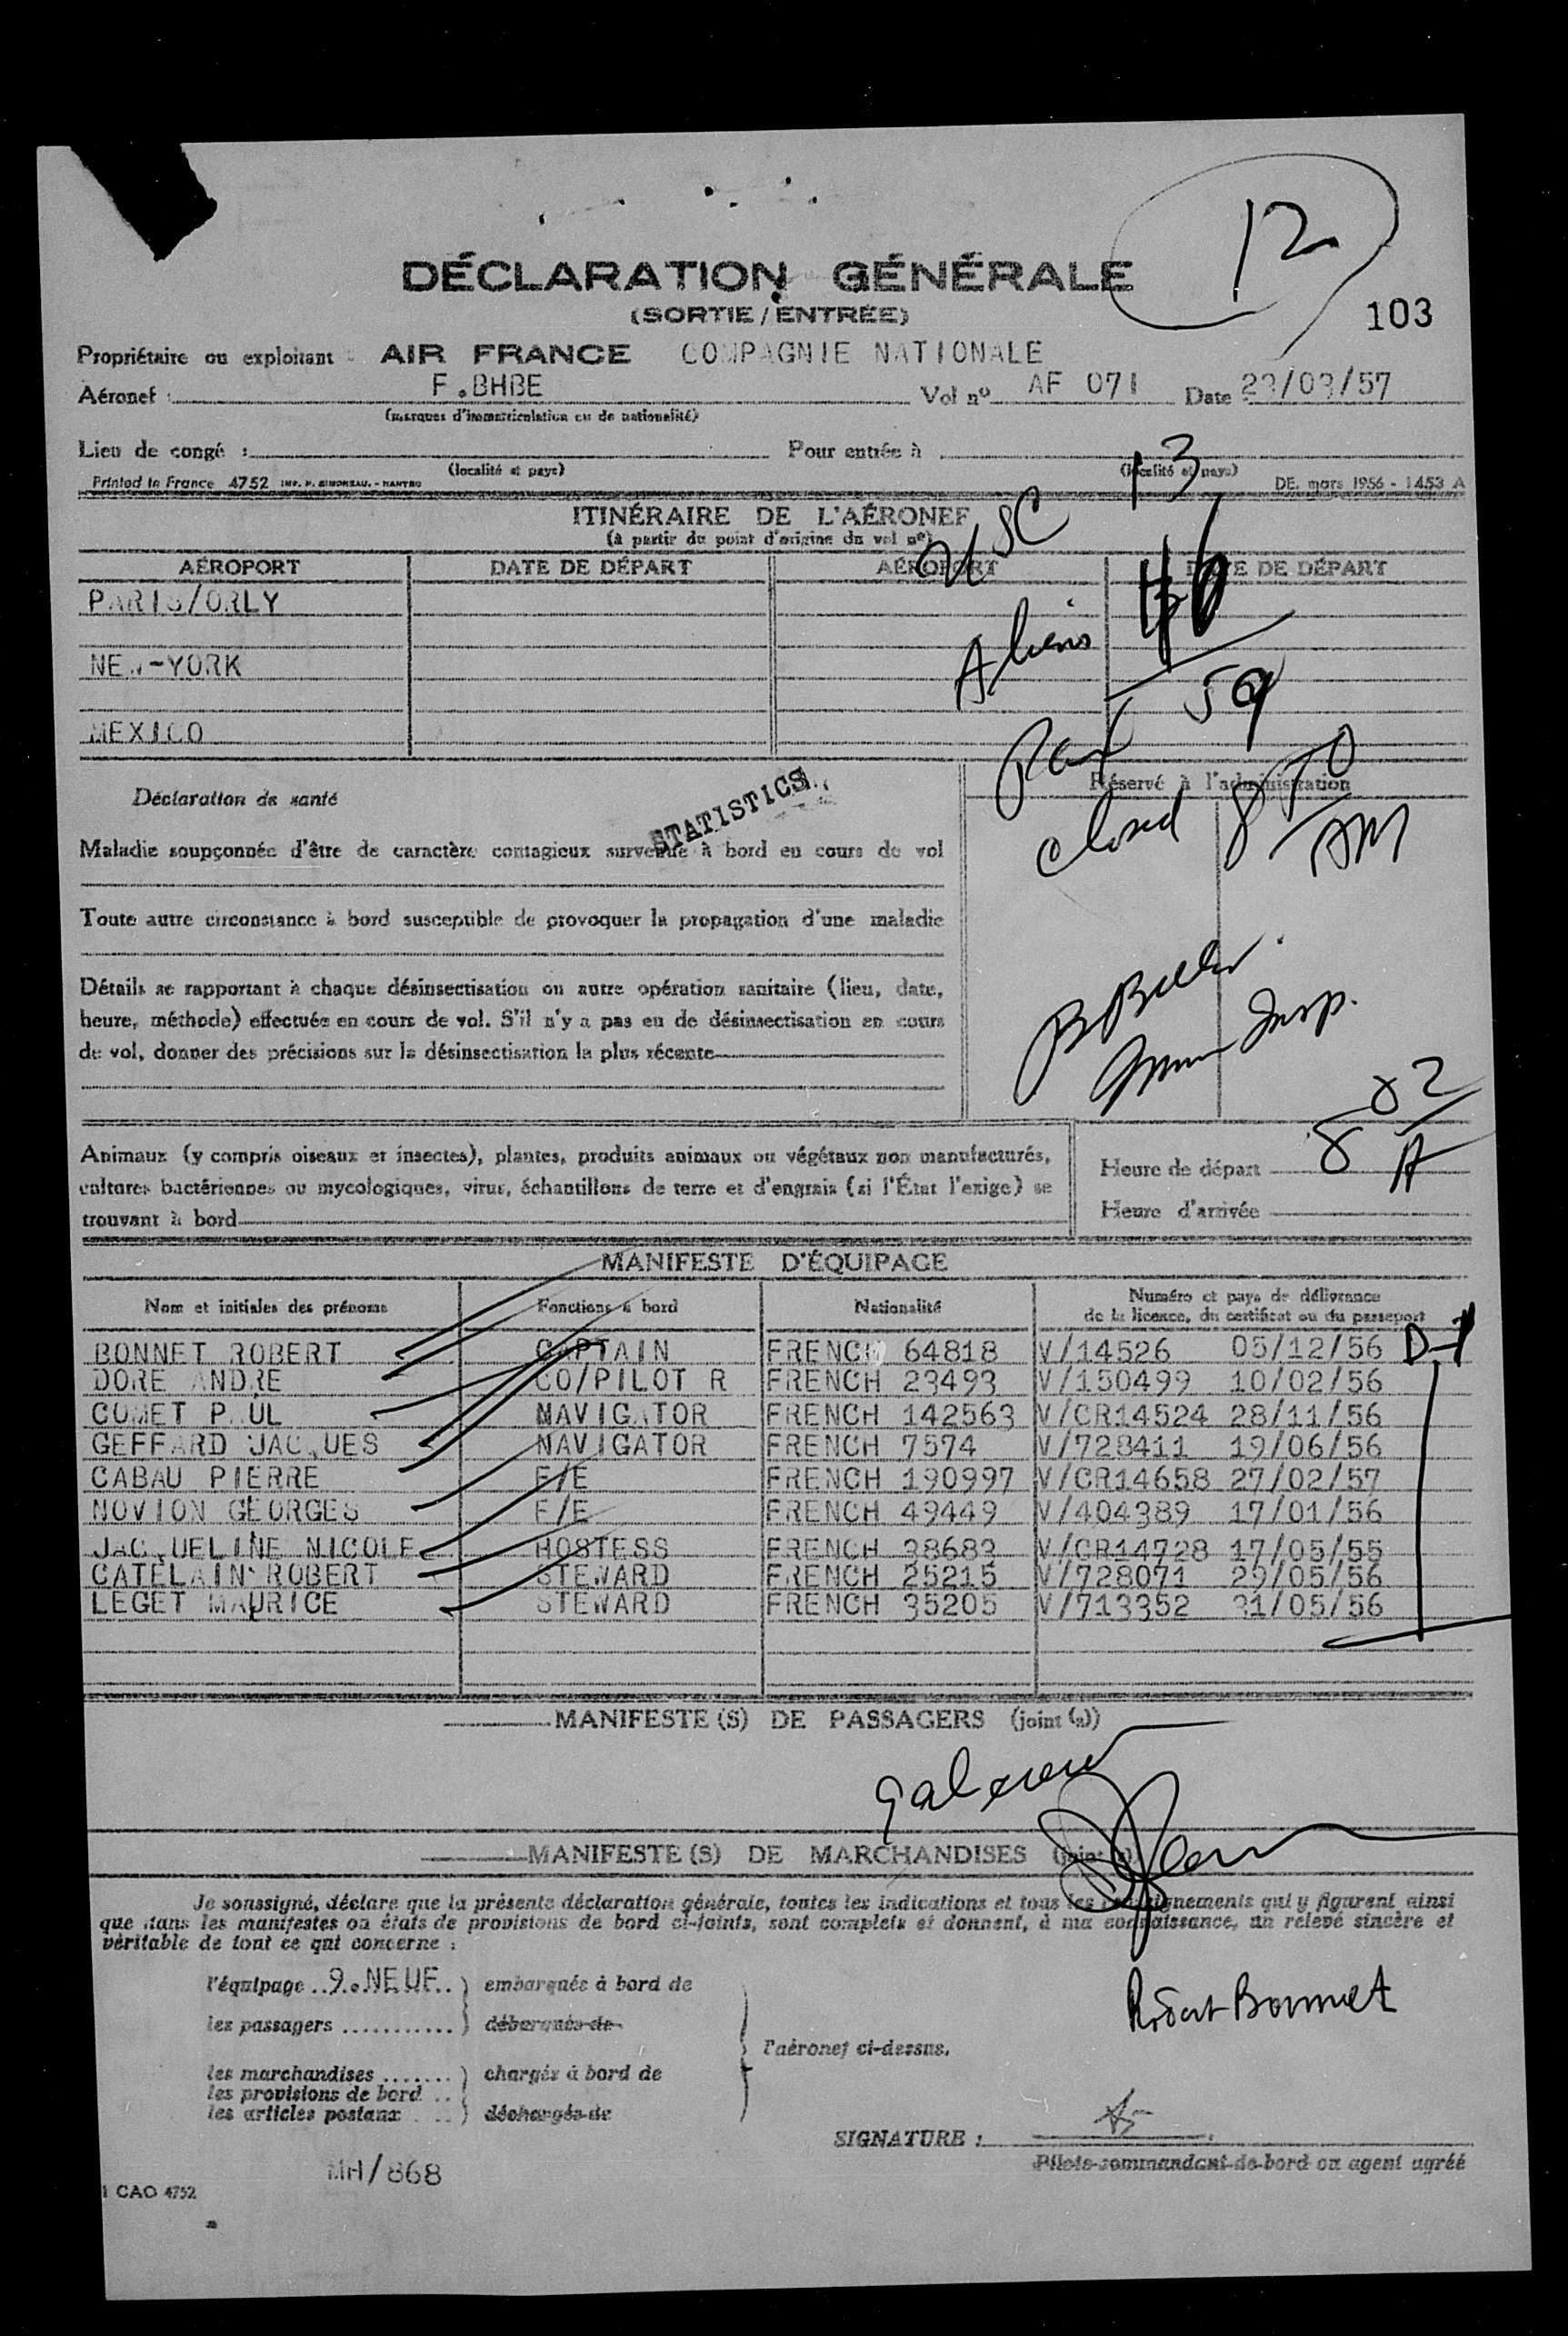 12
DÉCLARATION GÉNÉRALE
(SORTIE / ENTRÉE)
103
Propriétaire ou exploitant : AIR FRANCE COMPAGNIE NATIONALE
Aéronef : F.BHBE Vol nº AF 071 Date 23/03/57
(marques d'immatriculation ou de nationalité)
Lieu de congé : Pour entrée à
(localité et pays) (localité et pays)
Printed in France 4752 IMP. P. SIMONEAU. - NANTES DE. mars 1956 - 1453 A
ITINÉRAIRE DE L'AÉRONEF
(à partir du point d'origine du vol nº)
USC 13
AÉROPORT DATE DE DÉPART AÉROPORT DATE DE DÉPART
PARIS/ORLY
Aliens 46
NEW-YORK
59
MEXICO
Pax
Déclaration de santé
STATISTICS
Réservé à l'administration
closed 8 50 AM
Maladie soupçonnée d'être de caractère contagieux survenue à bord en cours de vol
Toute autre circonstance à bord susceptible de provoquer la propagation d'une maladie
Détails se rapportant à chaque désinsectisation ou autre opération sanitaire (lieu, date,
heure, méthode) effectuée en cours de vol. S'il n'y a pas eu de désinsectisation en cours
de vol, donner des précisions sur la désinsectisation la plus récente
Insp.
Animaux (y compris oiseaux et insectes), plantes, produits animaux ou végétaux non manufacturés,
cultures bactériennes ou mycologiques, virus, échantillons de terre et d'engrais (si l'État l'exige) se
trouvant à bord
Heure de départ 8 02 A
Heure d'arrivée
MANIFESTE D'ÉQUIPAGE
Nom et initiales des prénoms Fonctions à bord Nationalité Numéro et pays de délivrance
de la licence, du certificat ou du passeport
BONNET ROBERT CAPTAIN FRENCH 64818 V/14526 05/12/56 D-1
DORE ANDRE CO/PILOT R FRENCH 23493 V/150499 10/02/56
COMET PAUL NAVIGATOR FRENCH 142563 V/CR14524 28/11/56
GEFFARD JACQUES NAVIGATOR FRENCH 7574 V/728411 19/06/56
CABAU PIERRE F/E FRENCH 190997 V/CR14658 27/02/57
NOVION GEORGES F/E FRENCH 49449 V/404389 17/01/56
JACQUELINE NICOLE HOSTESS FRENCH 38683 V/CR14728 17/05/55
CATELAIN ROBERT STEWARD FRENCH 25215 V/728071 29/05/56
LEGET MAURICE STEWARD FRENCH 35205 V/713352 31/05/56
MANIFESTE (S) DE PASSAGERS (joint (s))
MANIFESTE (S) DE MARCHANDISES (joint (s))
Je soussigné, déclare que la présente déclaration générale, toutes les indications et tous les renseignements qui y figurent ainsi
que dans les manifestes ou états de provisions de bord ci-joints, sont complets et donnent, à ma connaissance, un relevé sincère et
véritable de tout ce qui concerne :
l'équipage ..9.NEUF.. embarqués à bord de
les passagers ........... débarqués de
l'aéronef ci-dessus.
les marchandises ....... chargés à bord de
les provisions de bord ..
les articles postaux . .. déchargés de
Robert Bonnet
SIGNATURE :
Pilote-commandant-de-bord ou agent agréé
MH/868
I CAO 4752